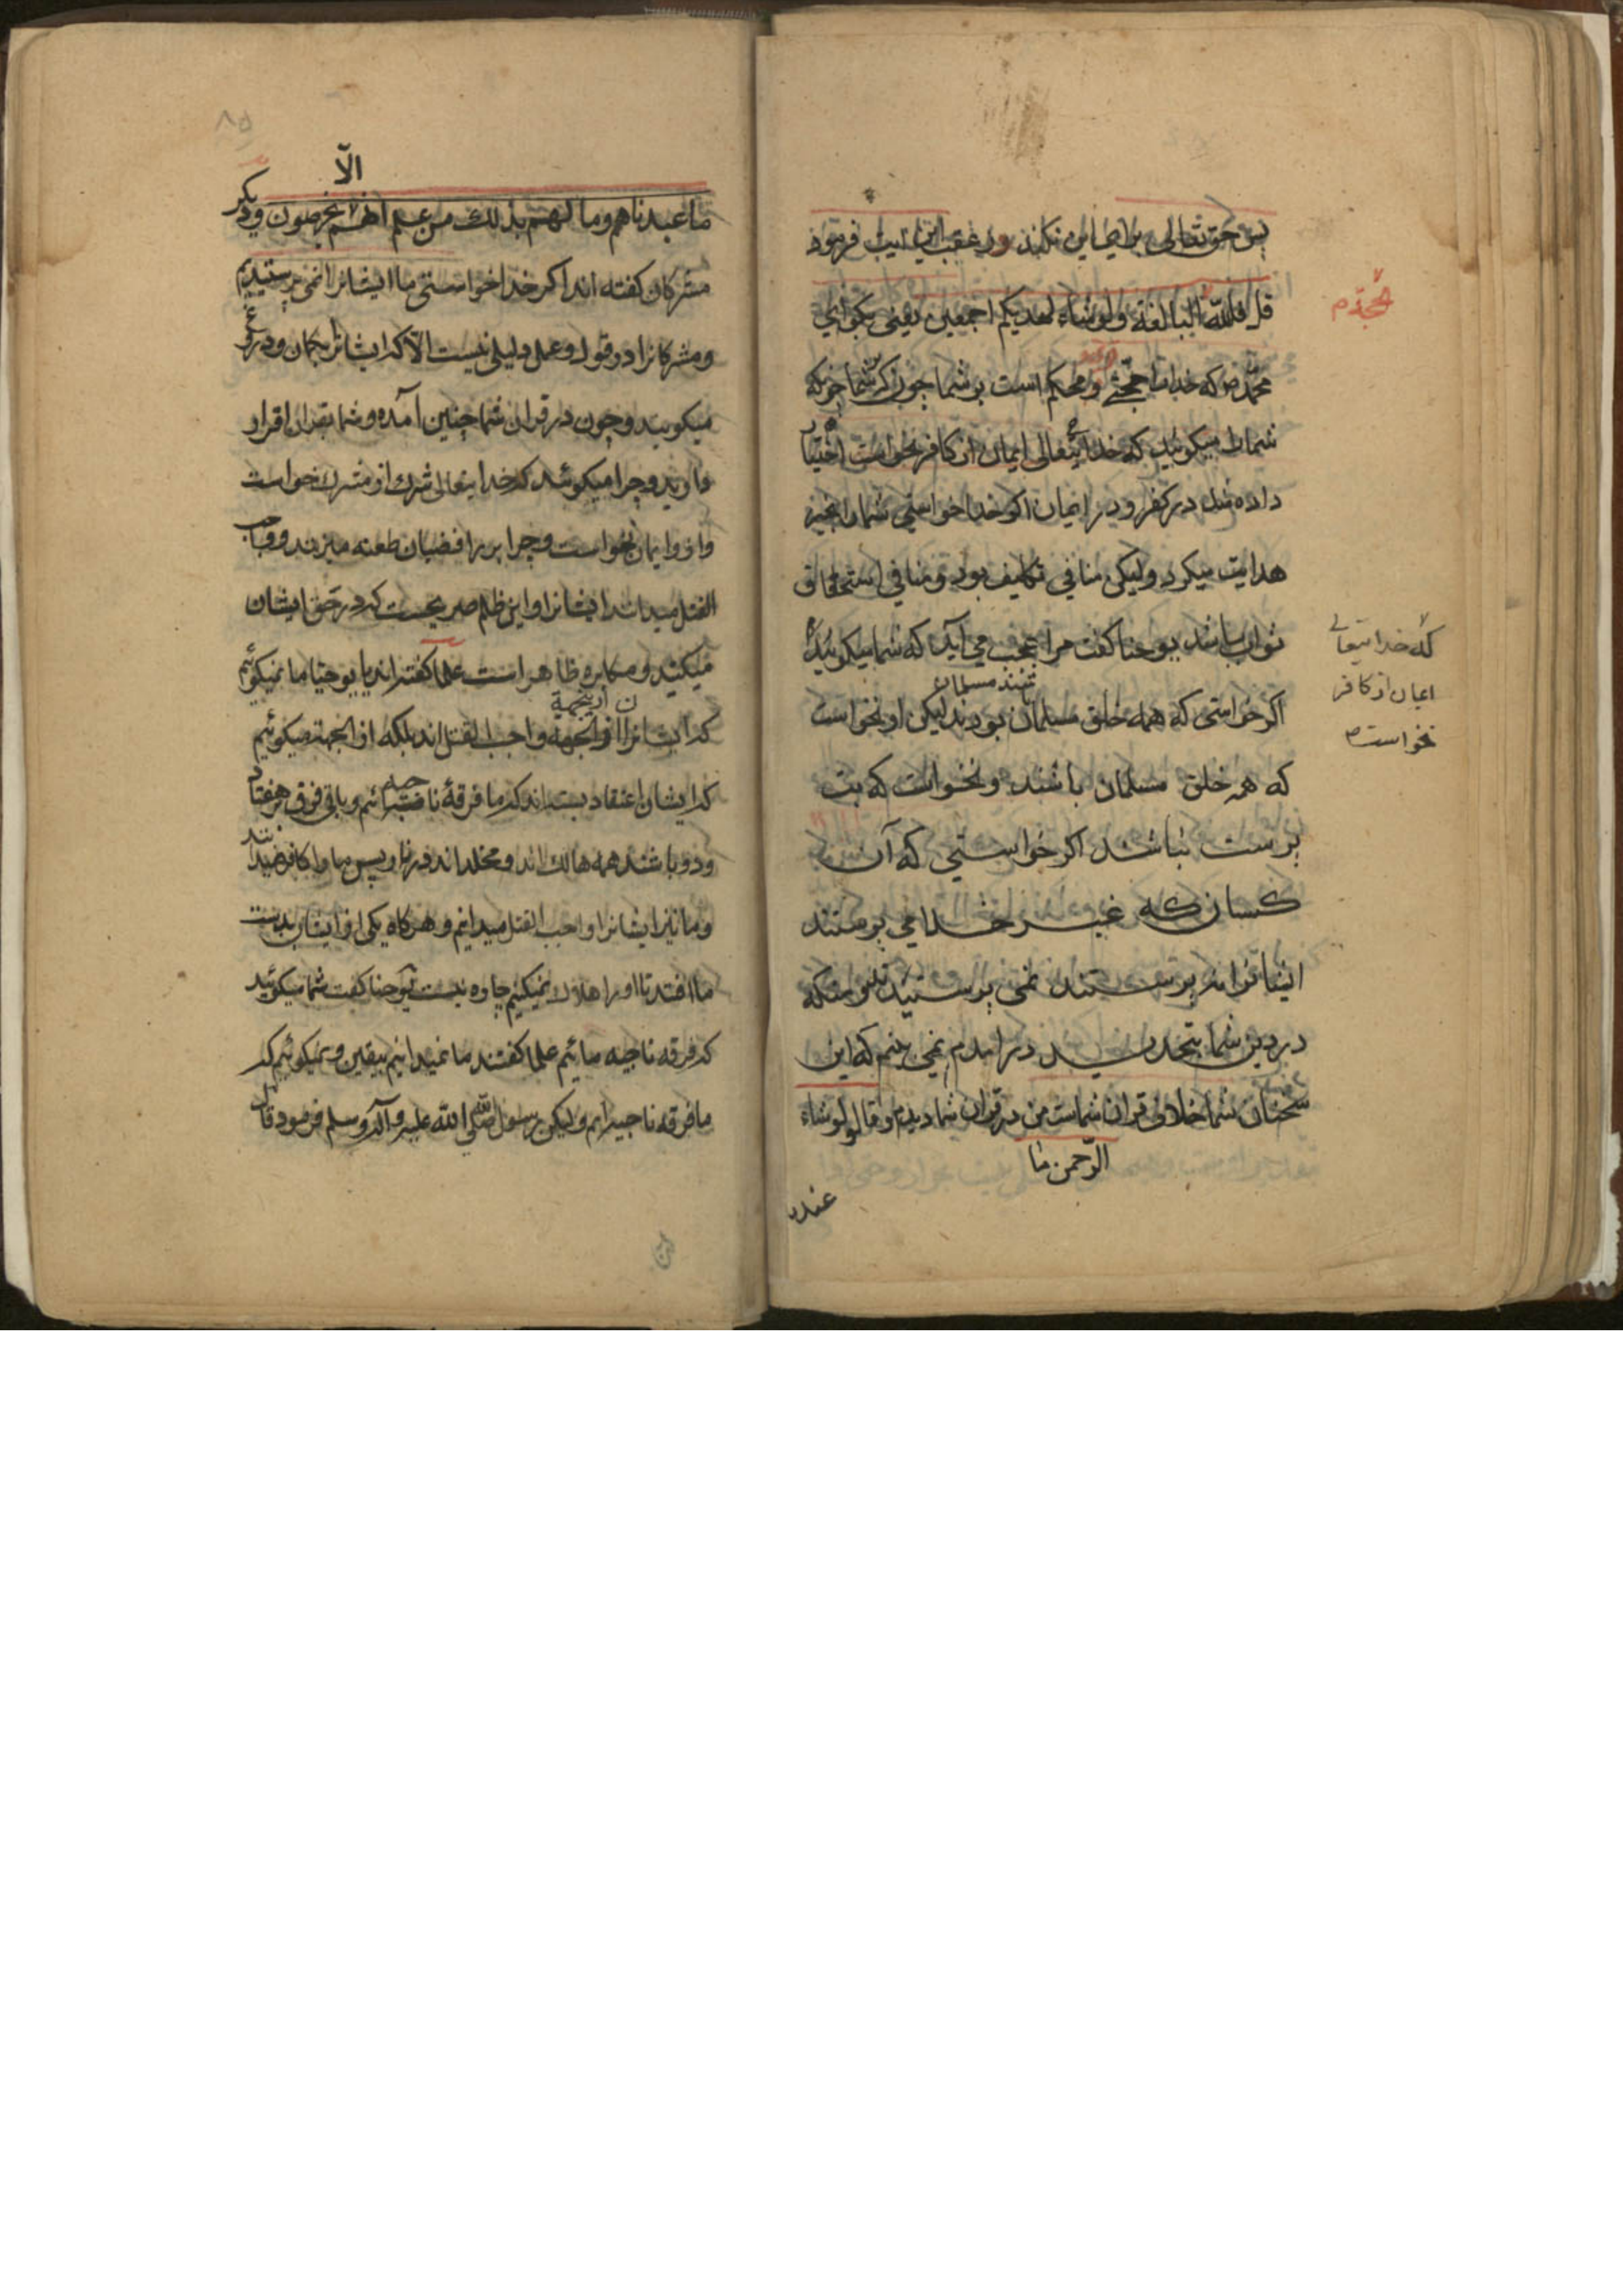 پس حق تعالی برای این نکند و در عقب این آیت فرمود
قل فلله البالغة ولو شاء لهدیکم اجمعین یعنی بکو ای
الحجة م
محمد ص که خدایرا حجتی و محکم است بر شما چون که شما
شما را میکوئید که خدایتعالی ایمان از کافر نخواست اختیار
داده شد در کفر و در ایمان اکر خدا خواستی شما را بجبر
هدایت میکرد ولیکن منافی تکلیف بود و منافی استحقاق
ثواب باشد یوحنا کفت مرا عجب می آید که شما میکوئید
که خدایتعالی
ایمان از کافر
نخواست
اکر خواستی که همه خلق مسلمان بودند لیکن او نخواست
که همه خلق مسلمان باشند و نخواست که بت
پرست نباشد اکر خواستی که آن
کسان که غیر خدا می پرستند
ایشانرا نمی پرستیدند
در دین شما بتجدید در امدم نمی بینم که این
سخنان شما خلاف قران شماست من در قران شما دیدم وقالو لو شاء
الرحمن ما
عبد
الّا
ما عبدناهم وما لهم بذلك من علم انهم یخرصون و دیکر
مشرکان کفته اند اکر خدا خواستی ما ایشانرا نمی پرستیدیم
و مشرکانرا در قول و عمل دلیلی نیست الا که ایشان بکمان و دروغ
میکویند و چون در قران شما چنین آمده و شما بقران اقرار
دارید و چرا میکوئید که خدایتعالی شرك از مشرك خواست
و از و ایمان نخواست و چرا بر رافضیان طعنه میزنید و واجب
القتل میدانید ایشانرا و این ظلم صریحست که در حق ایشان
میکنید و مکابره ظاهر است علما کفتند ای یوحنا ما نمیکوئیم
که ایشانرا از اینجهة واجب القتل اند بلکه از انجهة میکوئیم
که ایشان اعتقاد بسته اند که ما فرقهٔ ناجیه ائیم و باقی فرق هفتاد
و دو باشند همه هالك اند و مخلد اند در نار و پس ما را کافر میدانند
و ما نیز ایشانرا واجب القتل میدانیم و هرکاه یکی از ایشان بدست
ما افتد تا او را هلاك نمیکنیم چاره نیست یوحنا کفت شما میکوئید
که فرقه ناجیه مائیم علما کفتند ما نمیدانیم بیقین و نمیکوئیم که
ما فرقه ناجیه ایم ولیکن رسول الله صلی الله علیه وآله وسلم فرمود قال